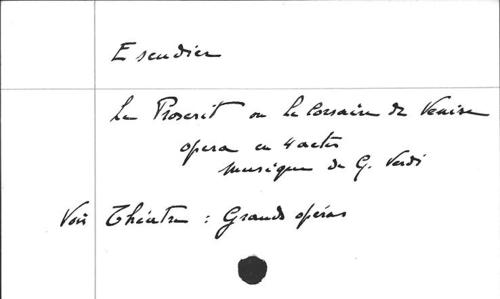 Escudier
Le Proscrit ou le Corsaire de Venise
opera en 4 actes
musique de G. Verdi
Voir Théâtre : Grands opéras